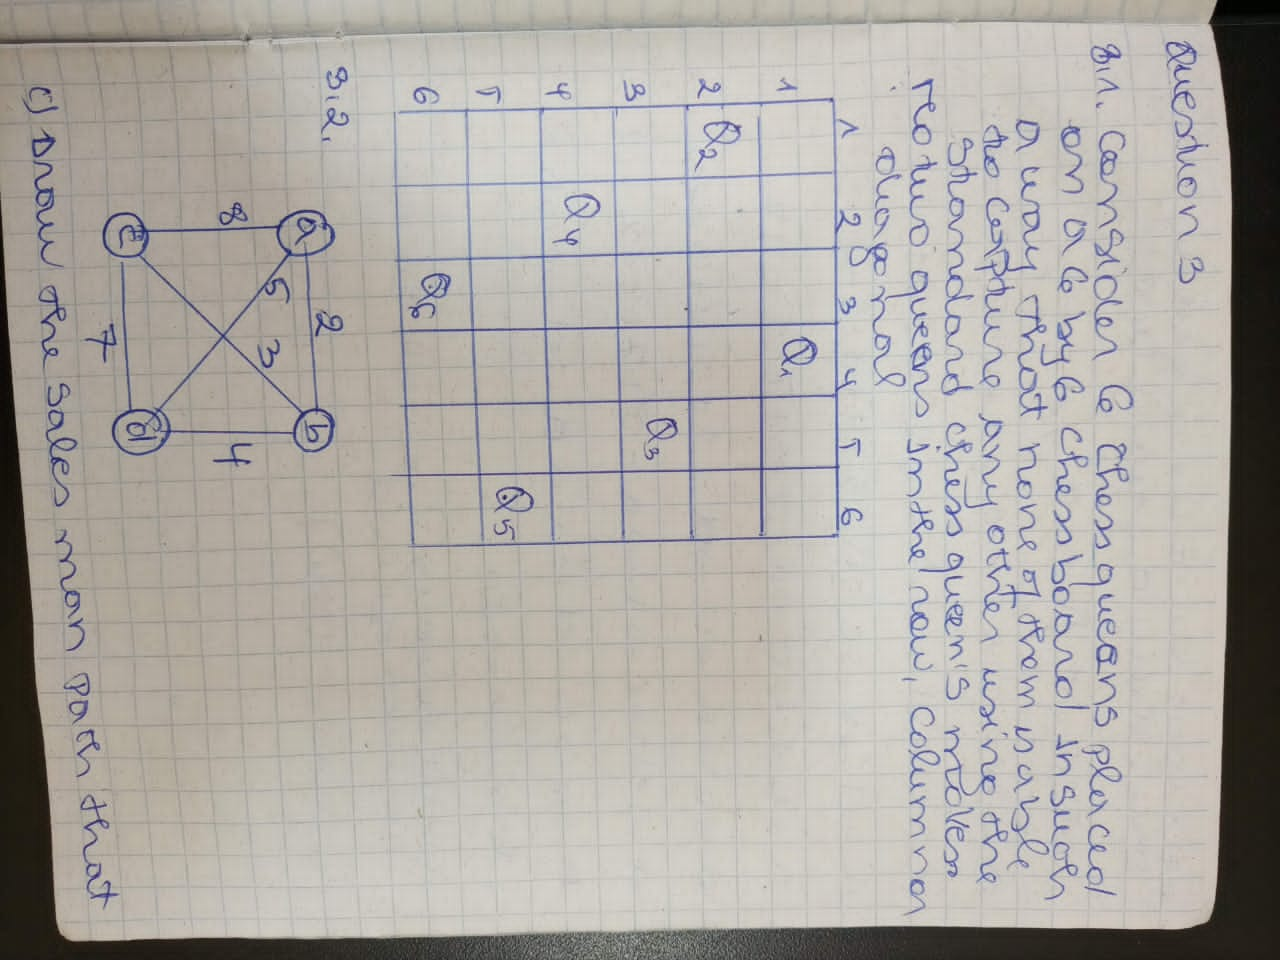 Question 3
3.1. Consider 6 chess queens placed
on a 6 by 6 chess board in such
a way that none of them is able
to capture any other using the
standard chess queen's moves
no two queens in the row, column or
diagonal
1 2 3 4 5 6
1 Q1
2 Q2
3 Q3
4 Q4
5 Q5
6 Q6
3.2.
a 2 b
5 3
8 4
c 7 d
c) Draw the sales man path that